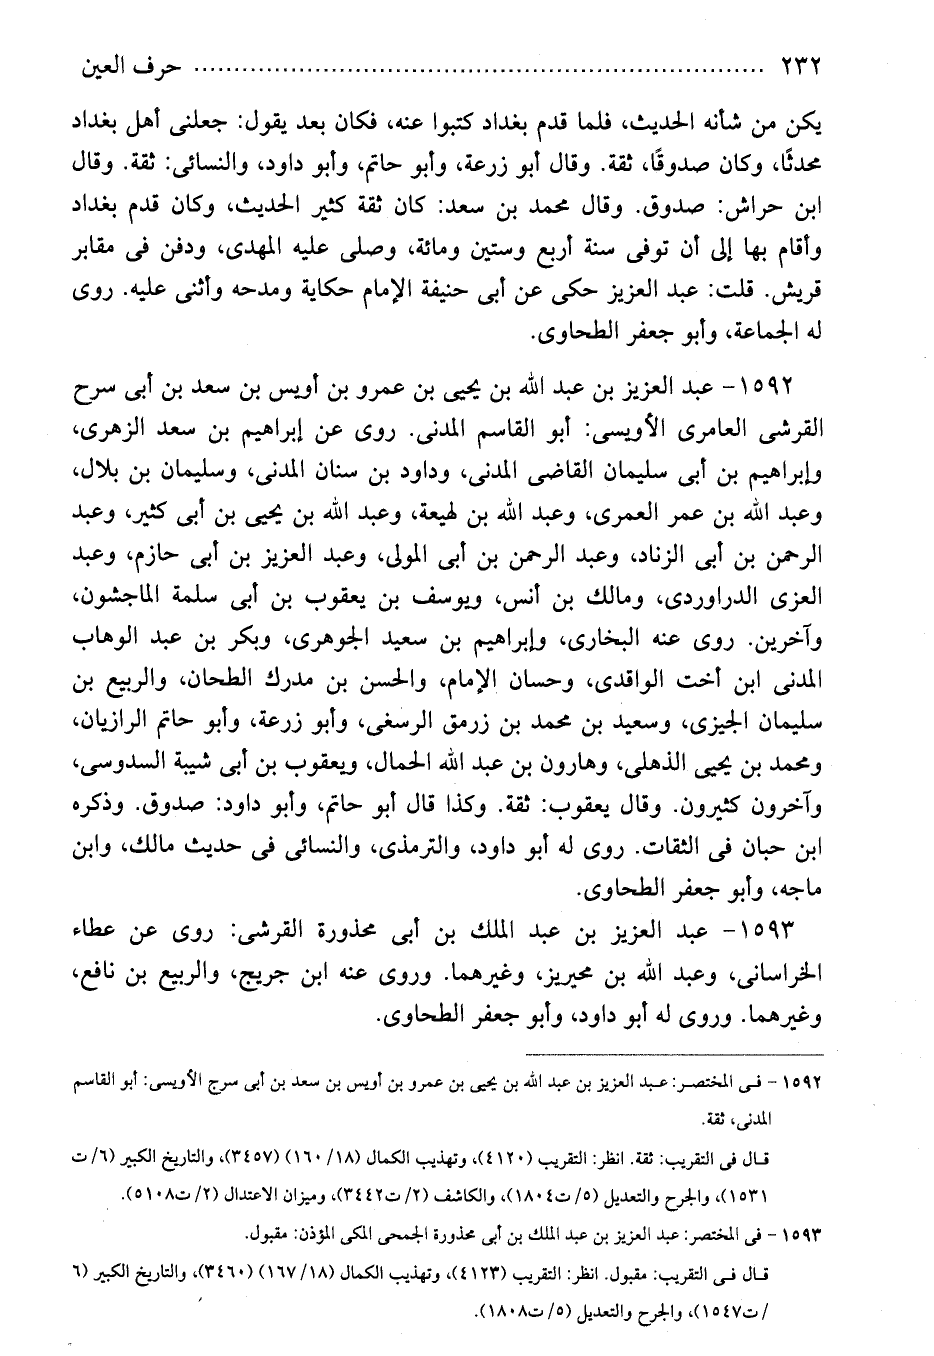 ٢٣٢ ........................................................................ حرف العين
يكن من شأنه الحديث، فلما قدم بغداد كتبوا عنه، فكان بعد يقول: جعلنى أهل بغداد
محدثًا، وكان صدوقًا، ثقة. وقال أبو زرعة، وأبو حاتم، وأبو داود، والنسائى: ثقة. وقال
ابن حراش: صدوق. وقال محمد بن سعد: كان ثقة كثير الحديث، وكان قدم بغداد
وأقام بها إلى أن توفى سنة أربع وستين ومائة، وصلى عليه المهدى، ودفن فى مقابر
قريش. قلت: عبد العزيز حكى عن أبى حنيفة الإمام حكاية ومدحه وأثنى عليه. روى
له الجماعة، وأبو جعفر الطحاوى.
١٥٩٢- عبد العزيز بن عبد الله بن يحيى بن عمرو بن أويس بن سعد بن أبى سرح
القرشى العامرى الأويسى: أبو القاسم المدنى. روى عن إبراهيم بن سعد الزهرى،
وإبراهيم بن أبى سليمان القاضى المدنى، وداود بن سنان المدنى، وسليمان بن بلال،
وعبد الله بن عمر العمرى، وعبد الله بن لهيعة، وعبد الله بن يحيى بن أبى كثير، وعبد
الرحمن بن أبى الزناد، وعبد الرحمن بن أبى المولى، وعبد العزيز بن أبى حازم، وعبد
العزى الدراوردى، ومالك بن أنس، ويوسف بن يعقوب بن أبى سلمة الماجشون،
وآخرين. روى عنه البخارى، وإبراهيم بن سعيد الجوهرى، وبكر بن عبد الوهاب
المدنى ابن أخت الواقدى، وحسان الإمام، والحسن بن مدرك الطحان، والربيع بن
سليمان الجيزى، وسعيد بن محمد بن زرمق الرسغى، وأبو زرعة، وأبو حاتم الرازيان،
ومحمد بن يحيى الذهلى، وهارون بن عبد الله الحمال، ويعقوب بن أبى شيبة السدوسى،
وآخرون كثيرون. وقال يعقوب: ثقة. وكذا قال أبو حاتم، وأبو داود: صدوق. وذكره
ابن حبان فى الثقات. روى له أبو داود، والترمذى، والنسائى فى حديث مالك، وابن
ماجه، وأبو جعفر الطحاوى.
١٥٩٣- عبد العزيز بن عبد الملك بن أبى محذورة القرشى: روى عن عطاء
الخراسانى، وعبد الله بن محيريز، وغيرهما. وروى عنه ابن جريج، والربيع بن نافع،
وغيرهما. وروى له أبو داود، وأبو جعفر الطحاوى.
١٥٩٢ - فى المختصر: عبد العزيز بن عبد الله بن يحيى بن عمرو بن أويس بن سعد بن أبى سرج الأويسى: أبو القاسم
المدنى، ثقة.
قال فى التقريب: ثقة. انظر: التقريب (٤١٢٠)، وتهذيب الكمال (١٨/ ١٦٠) (٣٤٥٧)، والتاريخ الكبير (٦/ ت
١٥٣١)، والجرح والتعديل (٥/ ت١٨٠٤)، والكاشف (٢/ ت٣٤٤٢)، وميزان الاعتدال (٢/ ت٥١٠٨).
١٥٩٣ - فى المختصر: عبد العزيز بن عبد الملك بن أبى محذورة الجمحى المكى المؤذن: مقبول.
قال فى التقريب: مقبول. انظر: التقريب (٤١٢٣)، وتهذيب الكمال (١٨/ ١٦٧) (٣٤٦٠)، والتاريخ الكبير (٦
/ ت١٥٤٧)، والجرح والتعديل (٥/ ت١٨٠٨).